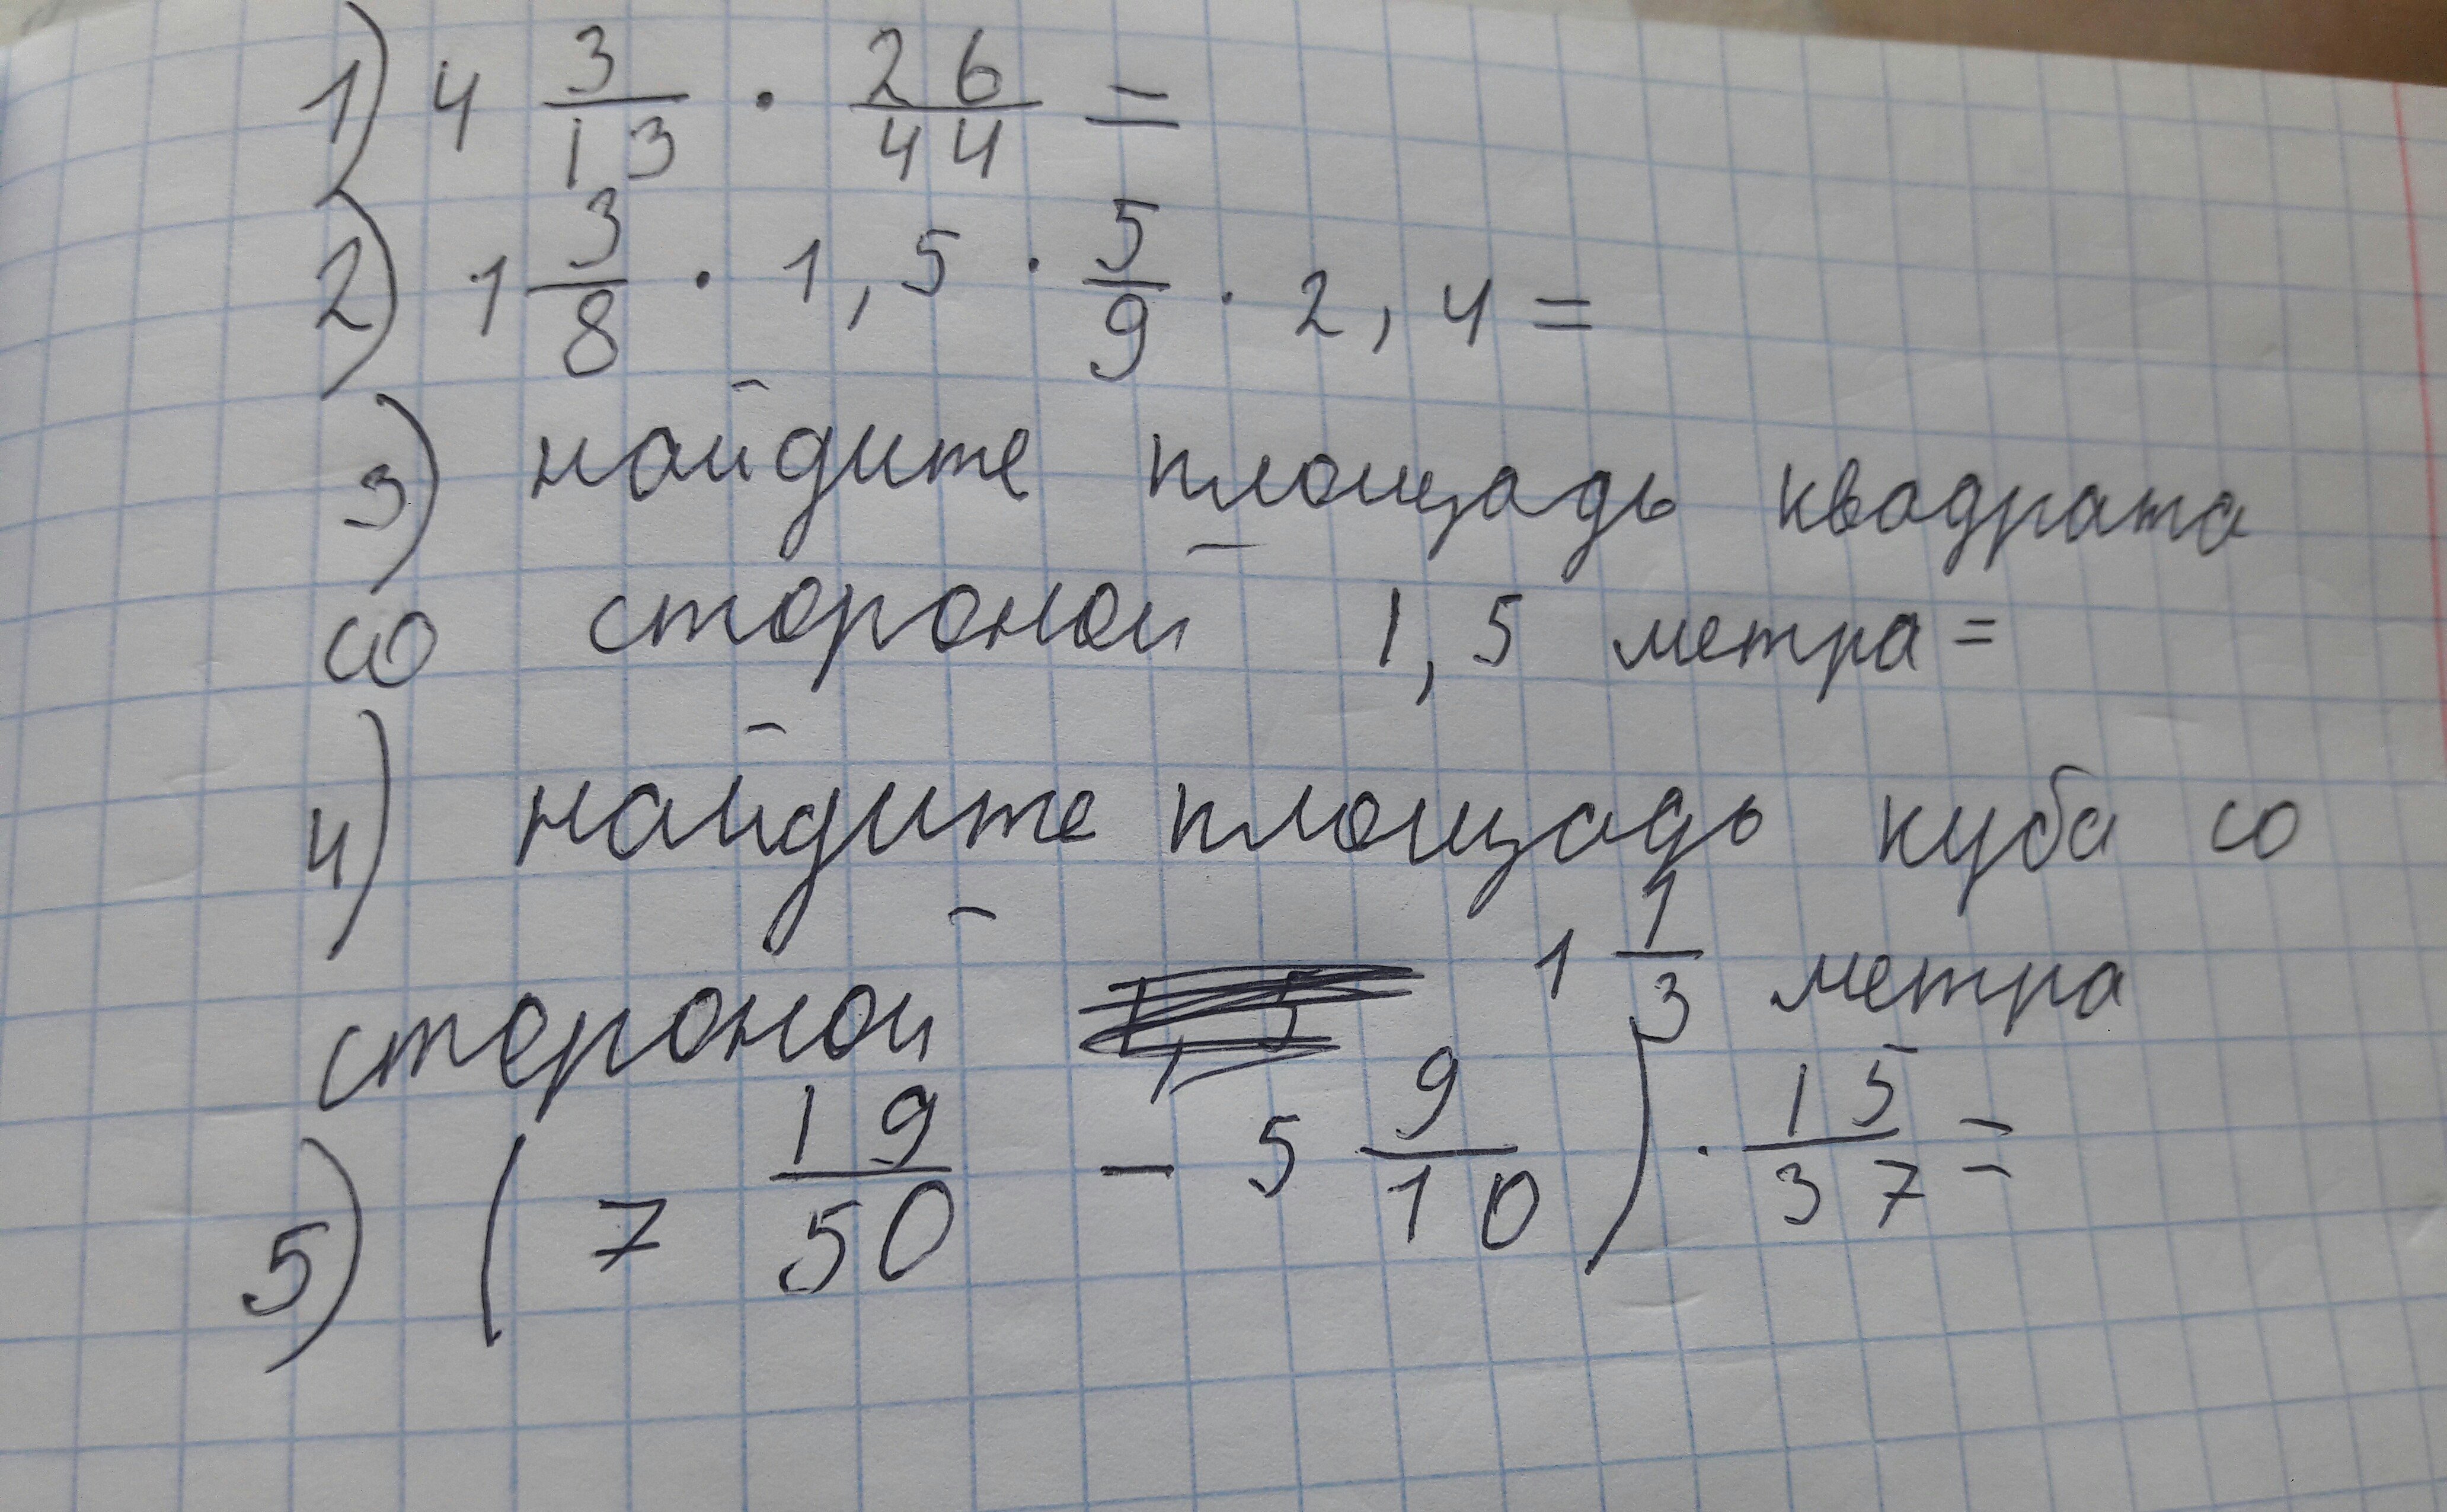 1) 4 3/13 · 26/44 =
2) 1 3/8 · 1,5 · 5/9 · 2,4 =
3) найдите площадь квадрата
со стороной 1,5 метра =
4) найдите площадь куба со
стороной 1 1/3 метра
5) (7 19/50 - 5 9/10) · 15/37 =